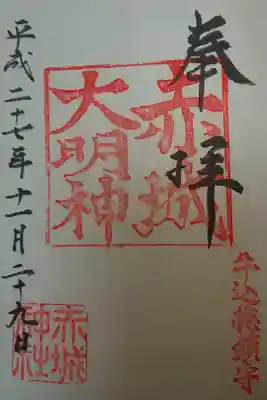 奉拝
牛込総鎮守
赤城
大明神
平成二十七年十一月二十九日
赤城
神社